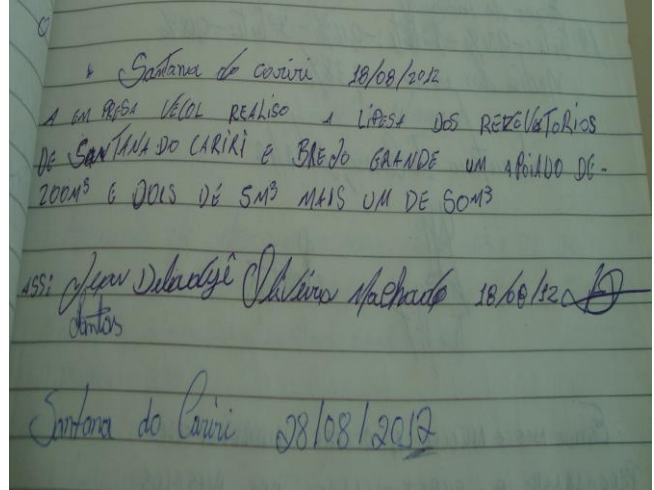 Santana do Cariri 18/08/2012
A EM PRESA VECOL REALISO A LIPESA DOS REZEVATORIOS
DE SANTANA DO CARIRI E BREJO GRANDE UM APOIADO DE-
200M³ E DOIS DE 5M³ MAIS UM DE 50M³
ASS: Oliveira Machado 18/08/12
Santana do Cariri 28/08/2012